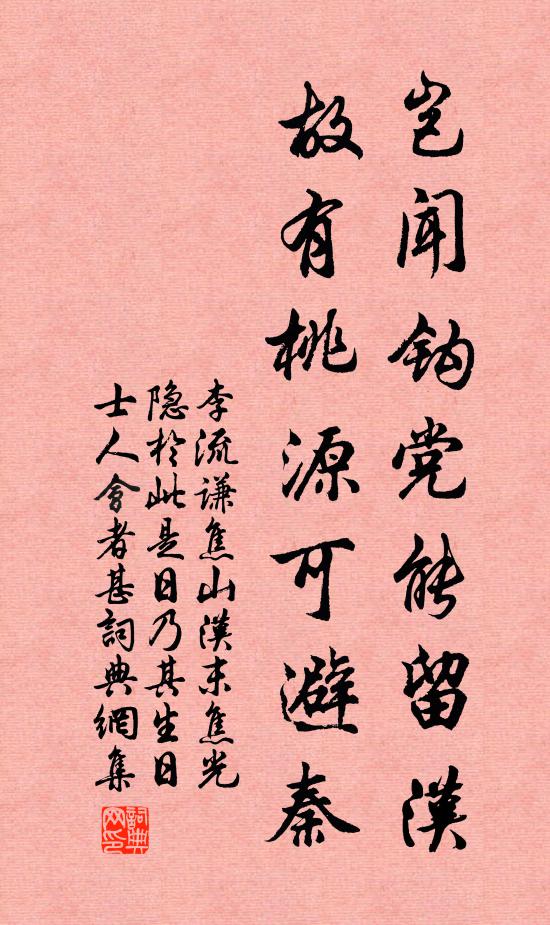 岂闻钩党能留漢
故有桃源可避秦
李流谦焦山漢末焦光
隐於此是日乃其生日
士人會者甚詞典網集
詞典网印